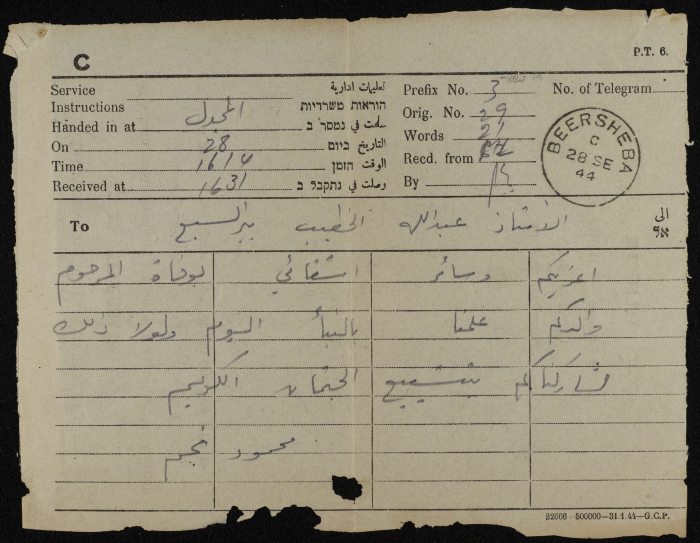 C
P.T. 6.
Service Instructions تعليمات ادارية הוראות משרדיות
Handed in at المجدل سلمت في נמסר ב
On 28 التاريخ ביום
Time 1614 الوقت הזמן
Received at 1631 وصلت في נתקבל ב
Prefix No. 3 No. of Telegram
Orig. No. 29
Words 21
Recd. from
By
BEERSHEBA
C
28 SE
44
To الاستاذ عبدالله الخطيب بير السبع الى אל
اعزيكم وسائر اشقائي بوفاة المرحوم
والدكم علمنا بالنبأ اليوم ولولا ذلك
لشاركناكم بتشييع الجثمان الكريم
محمود نجم
32006 - 500000—31.1.44—G.C.P.